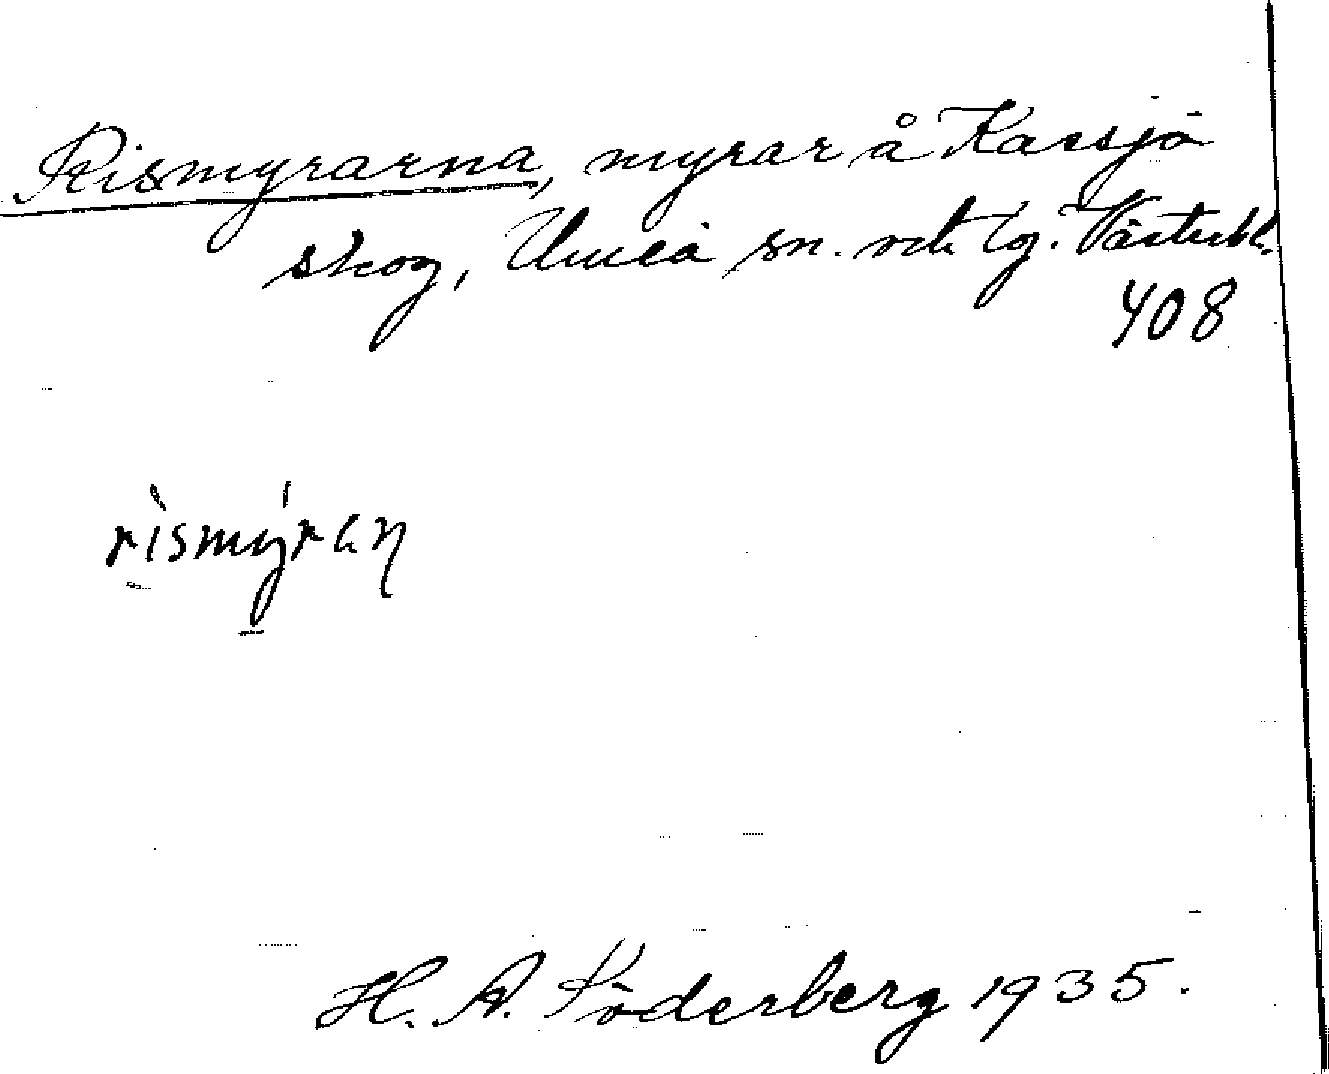 Rismyrarna, myrar å Kassjö
skog, Umeå sn. och tg. Västerbl.
408
rismyran
H. A. Söderberg 1935.